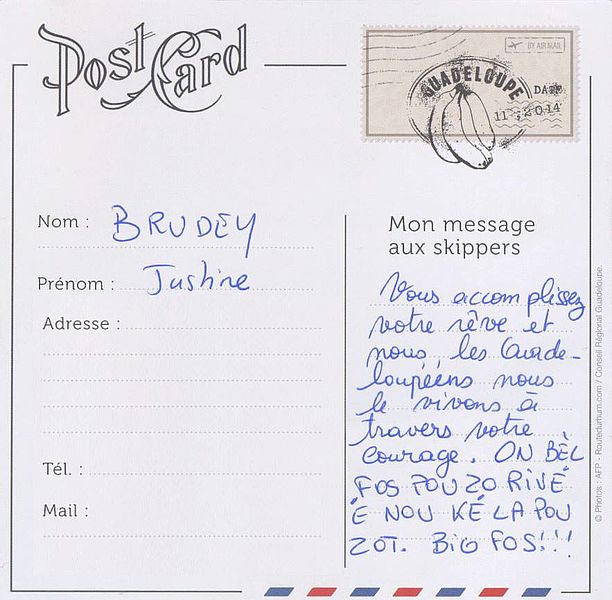 Post Card
BY AIR MAIL
GUADELOUPE
DATE
11 . 2014
Nom : BRUDEY
Prénom : Justine
Adresse :
Tél. :
Mail :
Mon message
aux skippers
Vous accomplissez
votre rêve et
nous, les Guade-
loupéens nous
le vivons à
travers votre
courage. ON BÈL
FOS POU ZO RIVÉ
É NOU KÉ LA POU
ZOT. BIG FOS!!!
© Photos : AFP - Routedurhum.com / Conseil Régional Guadeloupe.